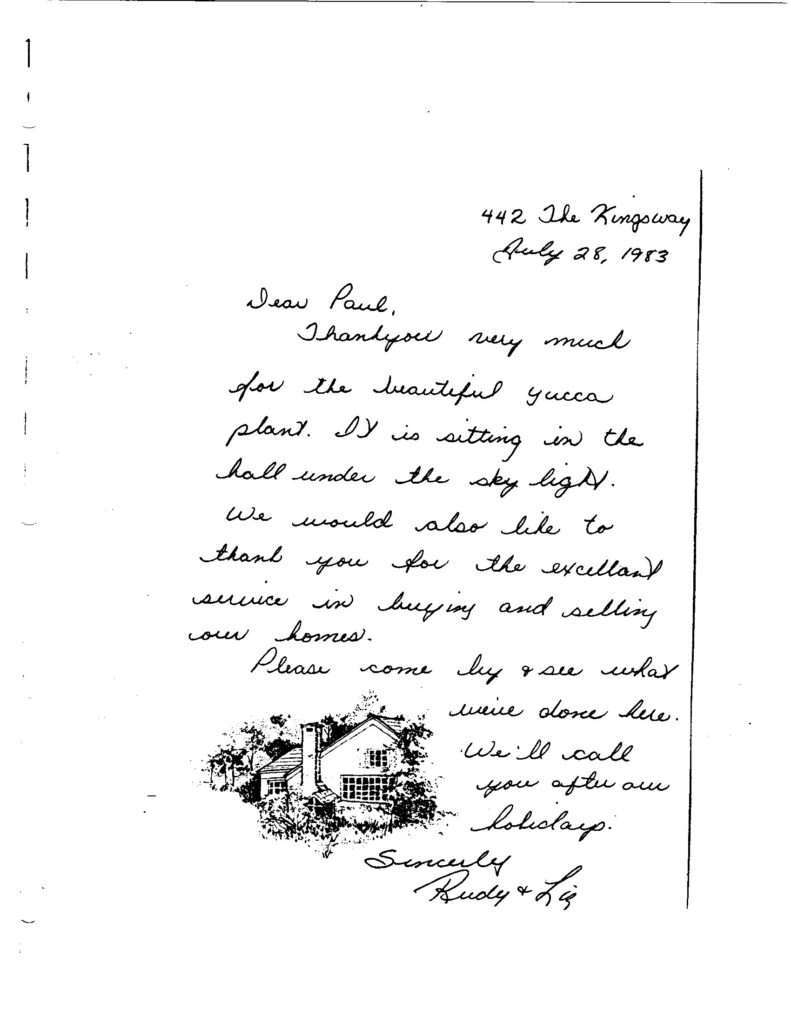 442 The Kingsway
July 28, 1983
Dear Paul,
Thankyou very much
for the beautiful yucca
plant. It is sitting in the
hall under the sky light.
We would also like to
thank you for the excellant
service in buying and selling
our homes.
Please come by & see what
we've done here.
We'll call
you after our
holidays.
Sincerly
Rudy & Liz